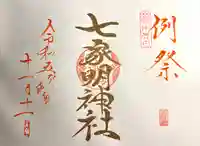 例祭
七家明神社
令和五年
十一月十一日